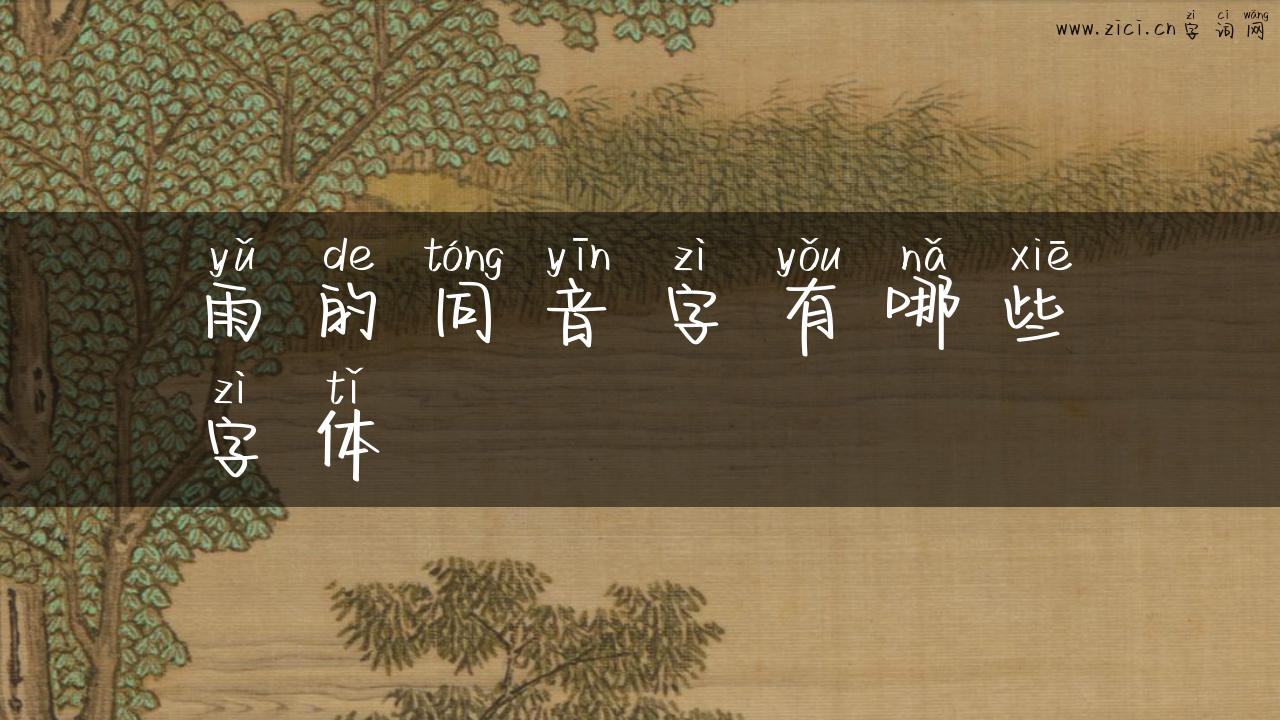 zì cí wǎng
www.zici.cn字词网
yǔ de tóng yīn zì yǒu nǎ xiē
雨的同音字有哪些
zì tǐ
字体